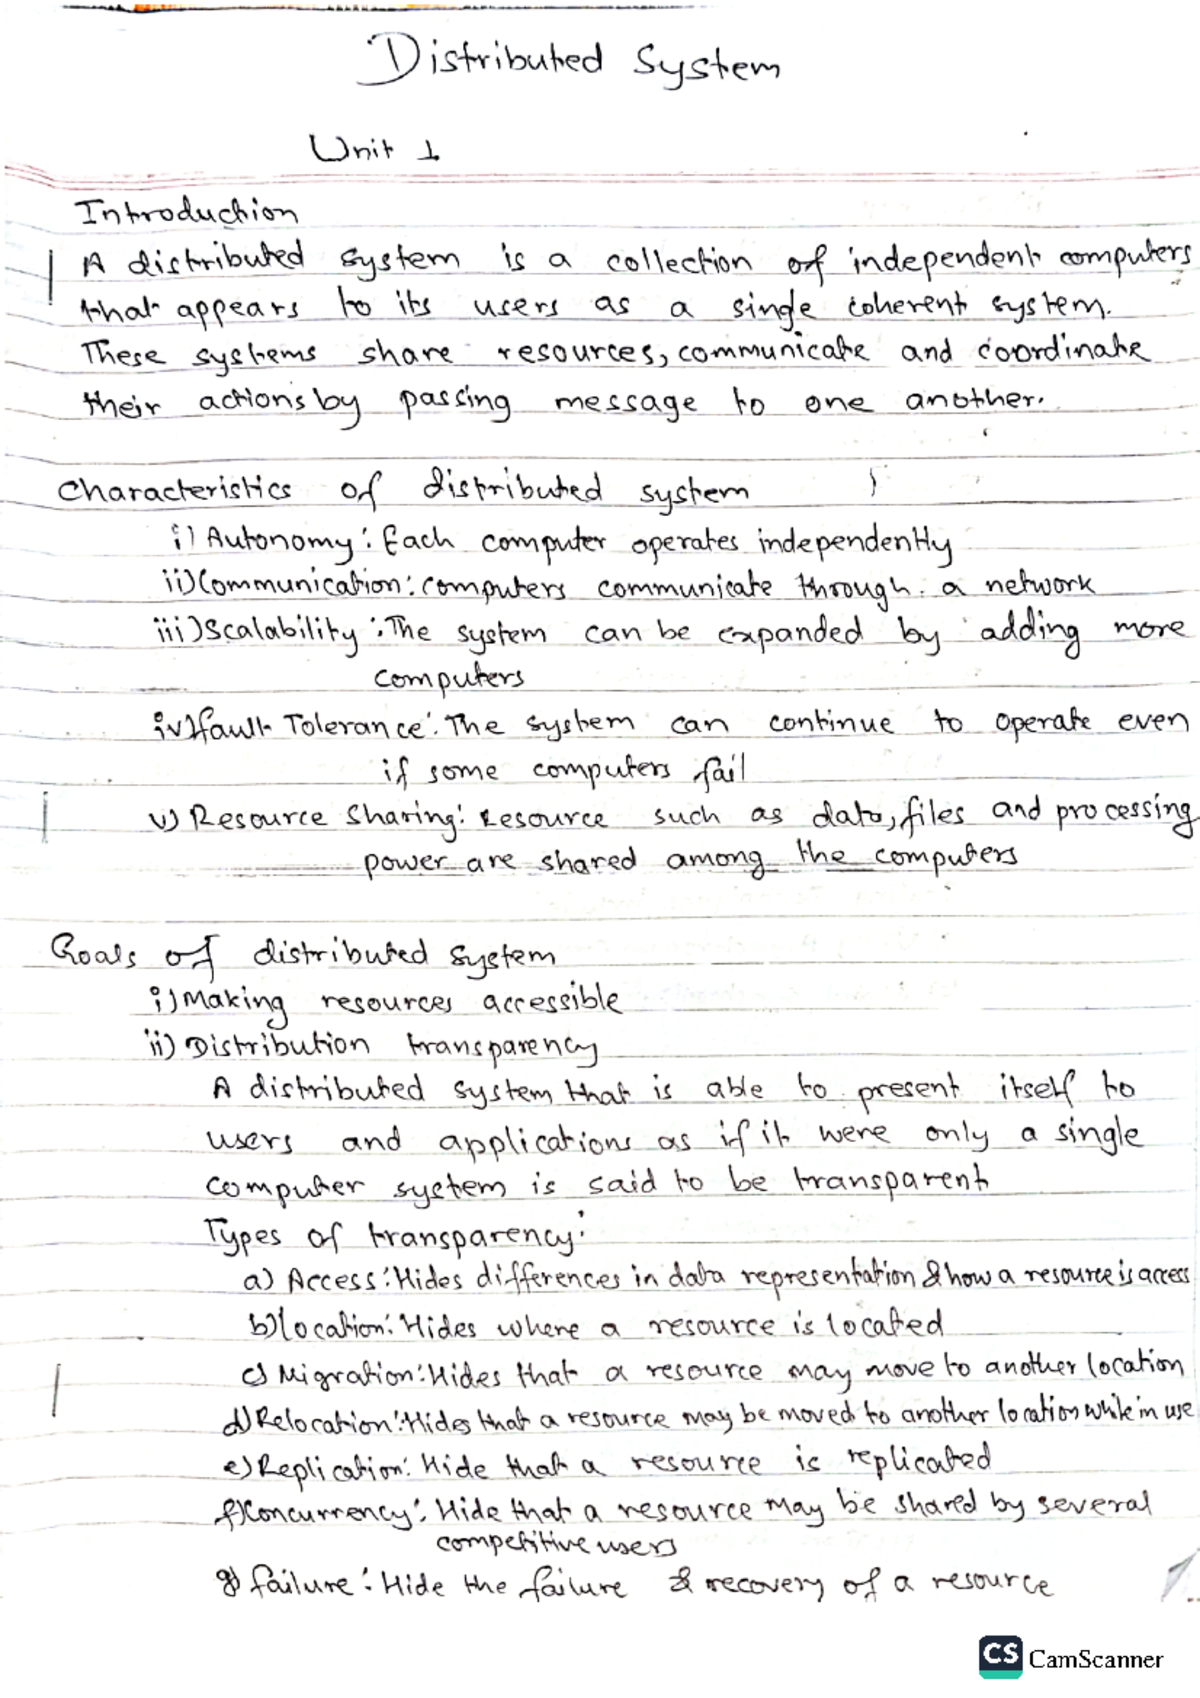 Distributed System
Unit 1
Introduction
A distributed system is a collection of independent computers
that appears to its users as a single coherent system.
These systems share resources, communicate and coordinate
their actions by passing message to one another.
Characteristics of distributed system
i) Autonomy: Each computer operates independently
ii) Communication: computers communicate through a network
iii) Scalability: The system can be expanded by adding more
computers
iv) fault Tolerance: The system can continue to operate even
if some computers fail
v) Resource Sharing: Resource such as data, files and processing
power are shared among the computers
Goals of distributed system
i) Making resources accessible
ii) Distribution transparency
A distributed system that is able to present itself to
users and applications as if it were only a single
computer system is said to be transparent
Types of transparency:
a) Access: Hides differences in data representation & how a resource is access
b) location: Hides where a resource is located
c) Migration: Hides that a resource may move to another location
d) Relocation: Hides that a resource may be moved to another location while in use
e) Replication: Hide that a resource is replicated
f) Concurrency: Hide that a resource may be shared by several
competitive users
g) failure: Hide the failure & recovery of a resource
CS CamScanner